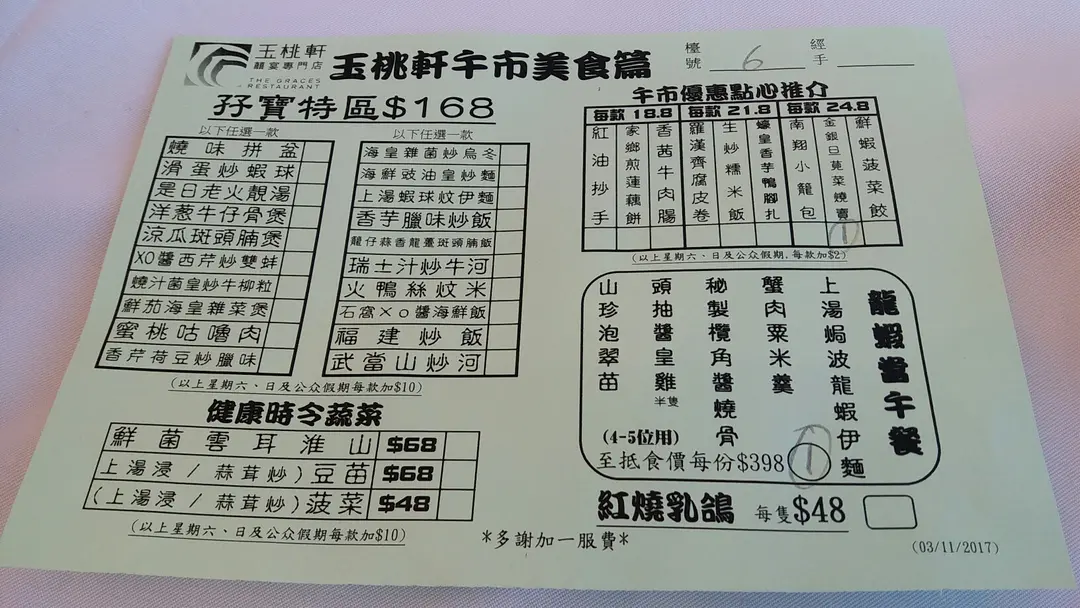 玉桃軒
囍宴專門店
THE GRACES
RESTAURANT
玉桃軒午市美食篇
檯號 6
經手
孖寶特區$168
以下任選一款
燒味拼盆
滑蛋炒蝦球
是日老火靚湯
洋葱牛仔骨煲
涼瓜斑頭腩煲
XO醬西芹炒雙蚌
燒汁菌皇炒牛柳粒
鮮茄海皇雜菜煲
蜜桃咕嚕肉
香芹荷豆炒臘味
以下任選一款
海皇雜菌炒烏冬
海鮮豉油皇炒麵
上湯蝦球炆伊麵
香芋臘味炒飯
龍仔蒜香龍躉斑頭腩飯
瑞士汁炒牛河
火鴨絲炆米
石窩XO醬海鮮飯
福建炒飯
武當山炒河
(以上星期六、日及公众假期每款加$10)
健康時令蔬菜
鮮菌雲耳淮山 $68
(上湯浸 / 蒜茸炒) 豆苗 $68
(上湯浸 / 蒜茸炒) 菠菜 $48
(以上星期六、日及公众假期每款加$10)
午市優惠點心推介
每款 18.8
每款 21.8
每款 24.8
紅油抄手
家鄉煎蓮藕餅
香茜牛肉腸
羅漢齊腐皮卷
生炒糯米飯
蠔皇香芋鴨腳扎
南翔小籠包
金銀日莫菜燒賣
鮮蝦菠菜餃
1
(以上星期六、日及公众假期,每款加$2)
龍蝦當午餐
上湯焗波龍蝦伊麵
蟹肉粟米羹
秘製欖角醬燒骨
頭抽醬皇雞 半隻
山珍泡翠苗
(4-5位用)
至抵食價每份$398
1
紅燒乳鴿 每隻$48
*多謝加一服費*
(03/11/2017)